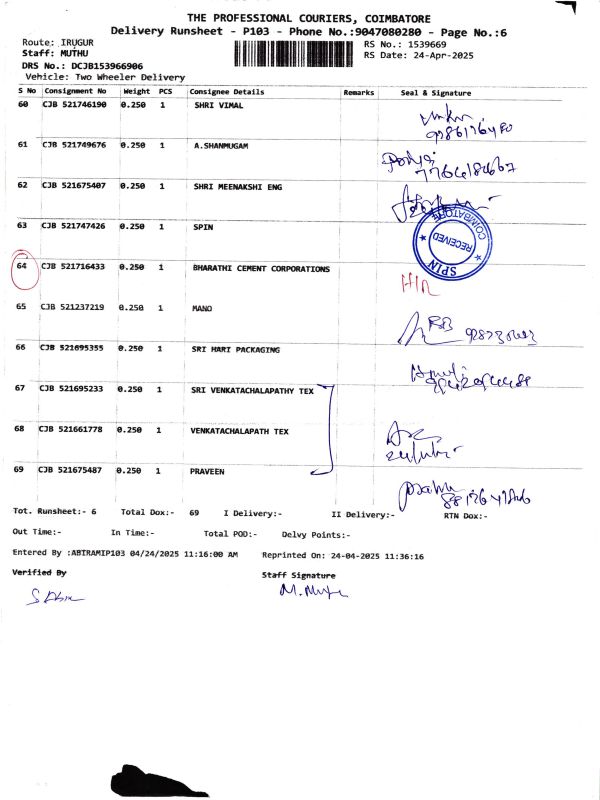 THE PROFESSIONAL COURIERS, COIMBATORE
Delivery Runsheet - P103 - Phone No.:9047080280 - Page No.:6
Route: IRUGUR
RS No.: 1539669
Staff: MUTHU
RS Date: 24-Apr-2025
DRS No.: DCJB153966906
Vehicle: Two Wheeler Delivery
S No Consignment No Weight PCS Consignee Details Remarks Seal & Signature
60 CJB 521746190 0.250 1 SHRI VIMAL
61 CJB 521749676 0.250 1 A.SHANMUGAM
62 CJB 521675407 0.250 1 SHRI MEENAKSHI ENG
63 CJB 521747426 0.250 1 SPIN
COIMBATORE
RECEIVED
SPIN
64 CJB 521716433 0.250 1 BHARATHI CEMENT CORPORATIONS
65 CJB 521237219 0.250 1 MANO
66 CJB 521695355 0.250 1 SRI HARI PACKAGING
67 CJB 521695233 0.250 1 SRI VENKATACHALAPATHY TEX
68 CJB 521661778 0.250 1 VENKATACHALAPATH TEX
69 CJB 521675487 0.250 1 PRAVEEN
Tot. Runsheet:- 6 Total Dox:- 69 I Delivery:- II Delivery:- RTN Dox:-
Out Time:- In Time:- Total POD:- Delvy Points:-
Entered By :ABIRAMIP103 04/24/2025 11:16:00 AM Reprinted On: 24-04-2025 11:36:16
Verified By
Staff Signature